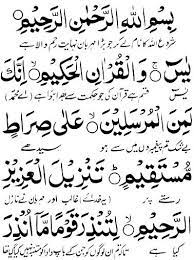 بِسْمِ اللهِ الرَّحْمٰنِ الرَّحِيْمِ
شروع اللہ کا نام لے کر جو بڑا مہربان نہایت رحم والا ہے
يٰسٓ ۚ وَالْقُرْاٰنِ الْحَكِيْمِ ۙ اِنَّكَ
یٰسٓ قسم ہے قرآن کی جو حکمت سے بھرا ہوا ہے (اے محمدؐ)
لَمِنَ الْمُرْسَلِيْنَ ۙ عَلٰى صِرَاطٍ
تم پیغمبروں میں سے ہو سیدھے
مُّسْتَقِيْمٍ ؕ تَنْزِيْلَ الْعَزِيْزِ
رستے پر غالب اور مہربان نے نازل
الرَّحِيْمِ ۙ لِتُنْذِرَ قَوْمًا مَّاۤ اُنْذِرَ
کیا ہے تاکہ تم ان لوگوں کو جن کے باپ دادا کو متنبہ نہیں کیا گیا تھا